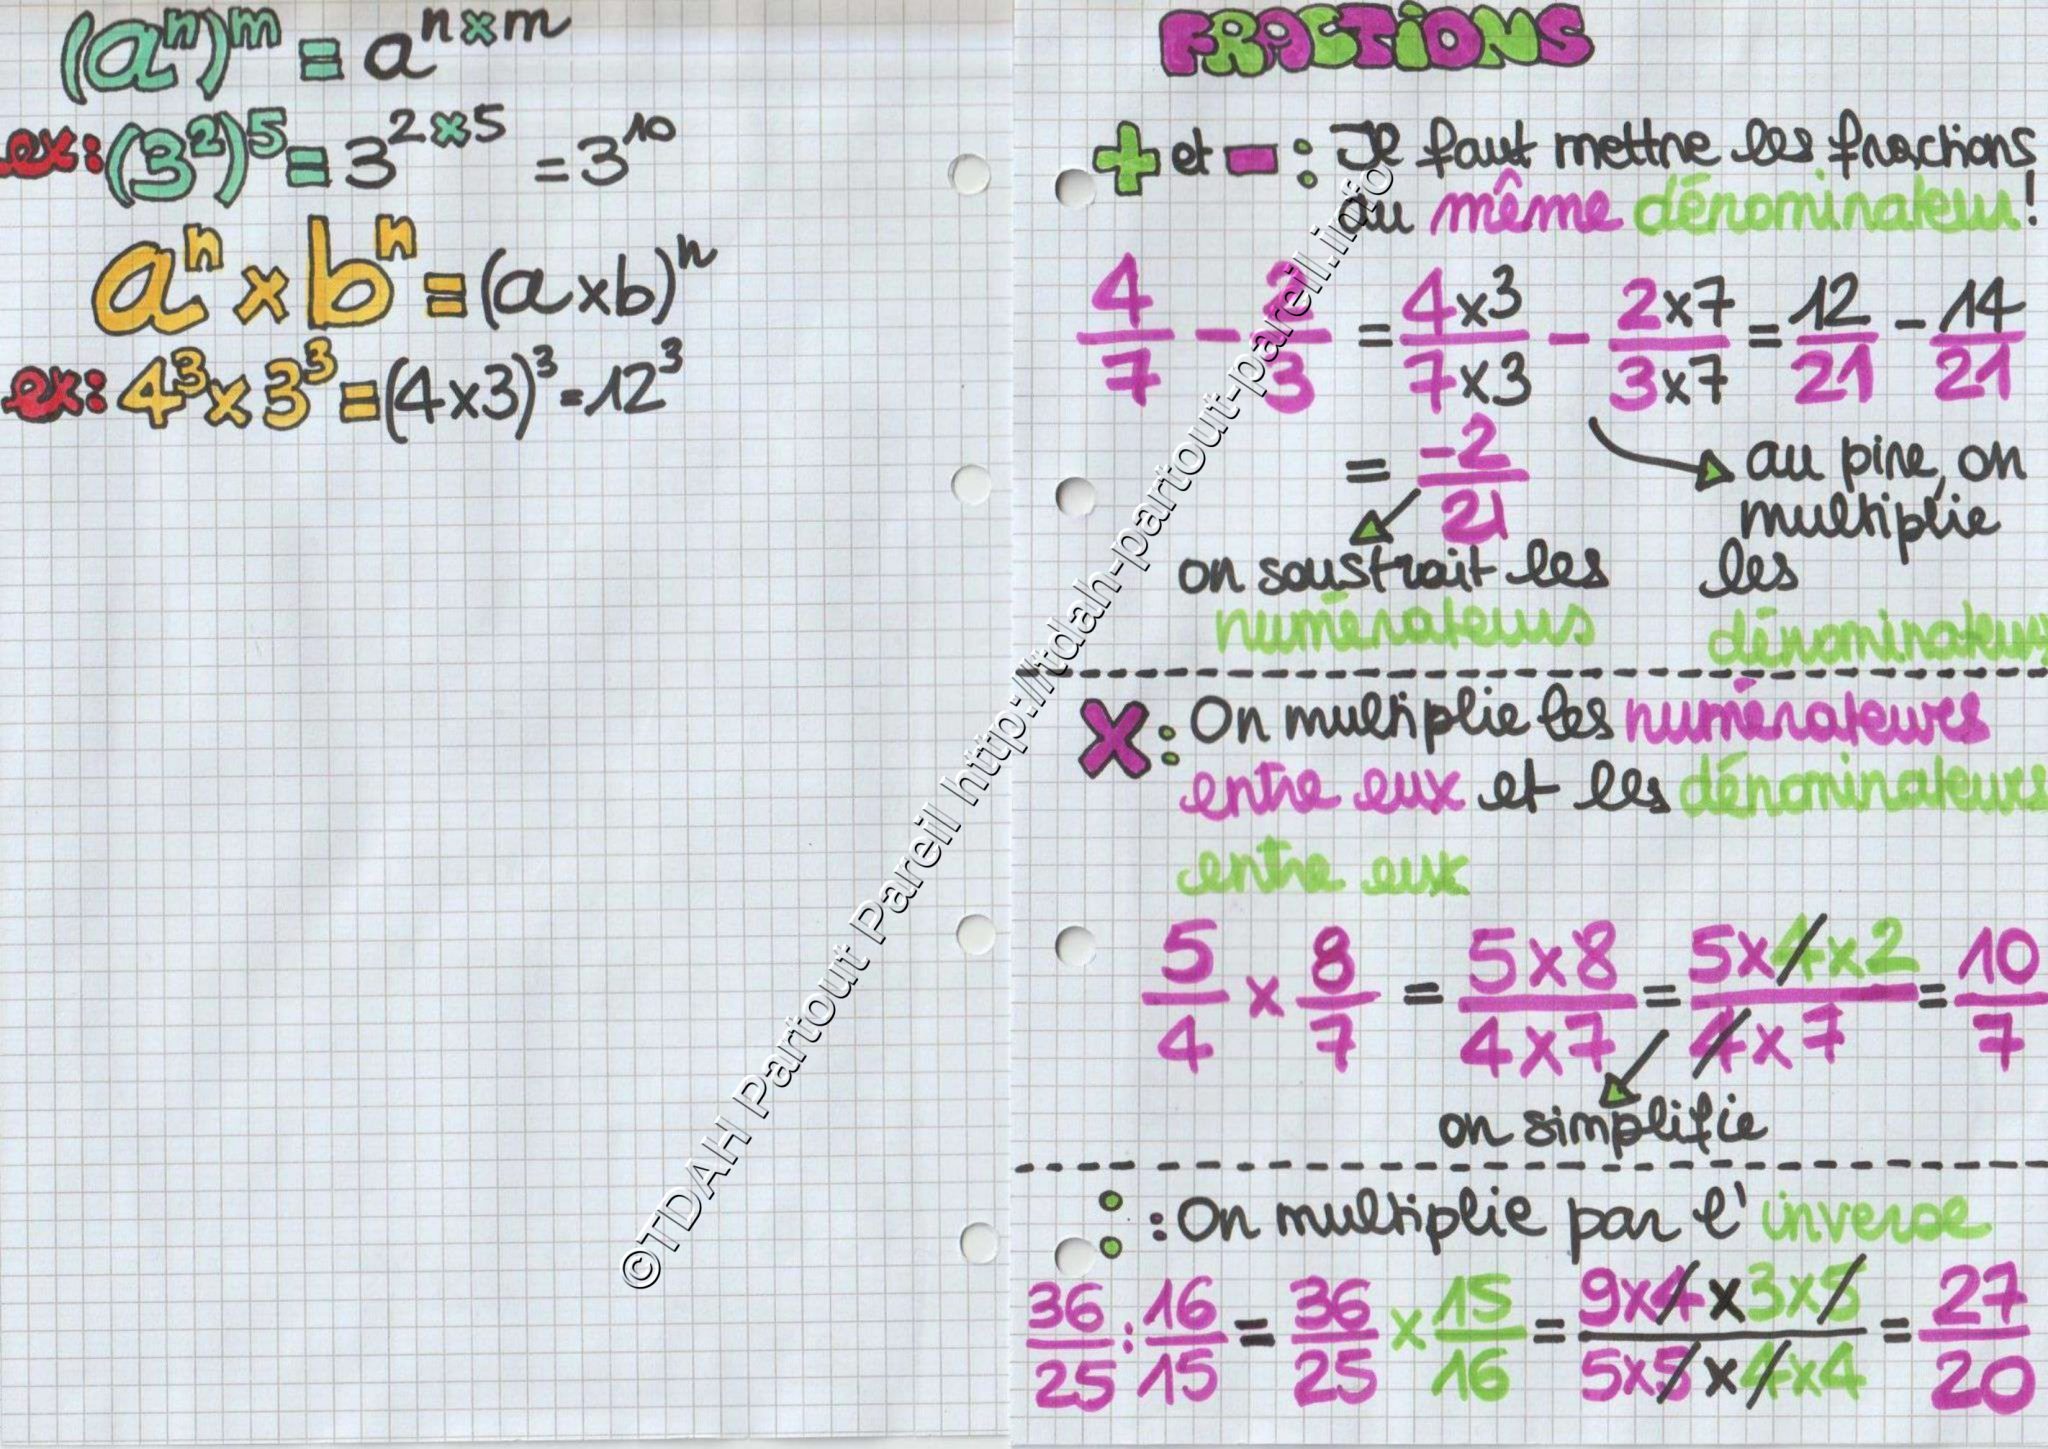 (aⁿ)ᵐ = aⁿˣᵐ
ex: (3²)⁵ = 3²ˣ⁵ = 3¹⁰
aⁿ x bⁿ = (a x b)ⁿ
ex: 4³ x 3³ = (4 x 3)³ = 12³
FRACTIONS
+ et - : Il faut mettre les fractions
au même dénominateur !
4/7 - 2/3 = 4x3/7x3 - 2x7/3x7 = 12/21 - 14/21
= -2/21
au pire, on
multiplie
les
dénominateurs
on soustrait les
numérateurs
X : On multiplie les numérateurs
entre eux et les dénominateurs
entre eux
5/4 x 8/7 = 5x8/4x7 = 5x4x2/4x7 = 10/7
on simplifie
: : On multiplie par l'inverse
36/25 : 16/15 = 36/25 x 15/16 = 9x4x3x5/5x5x4x4 = 27/20
©TDAH Partout Pareill http://tdah-partout-pareil.info